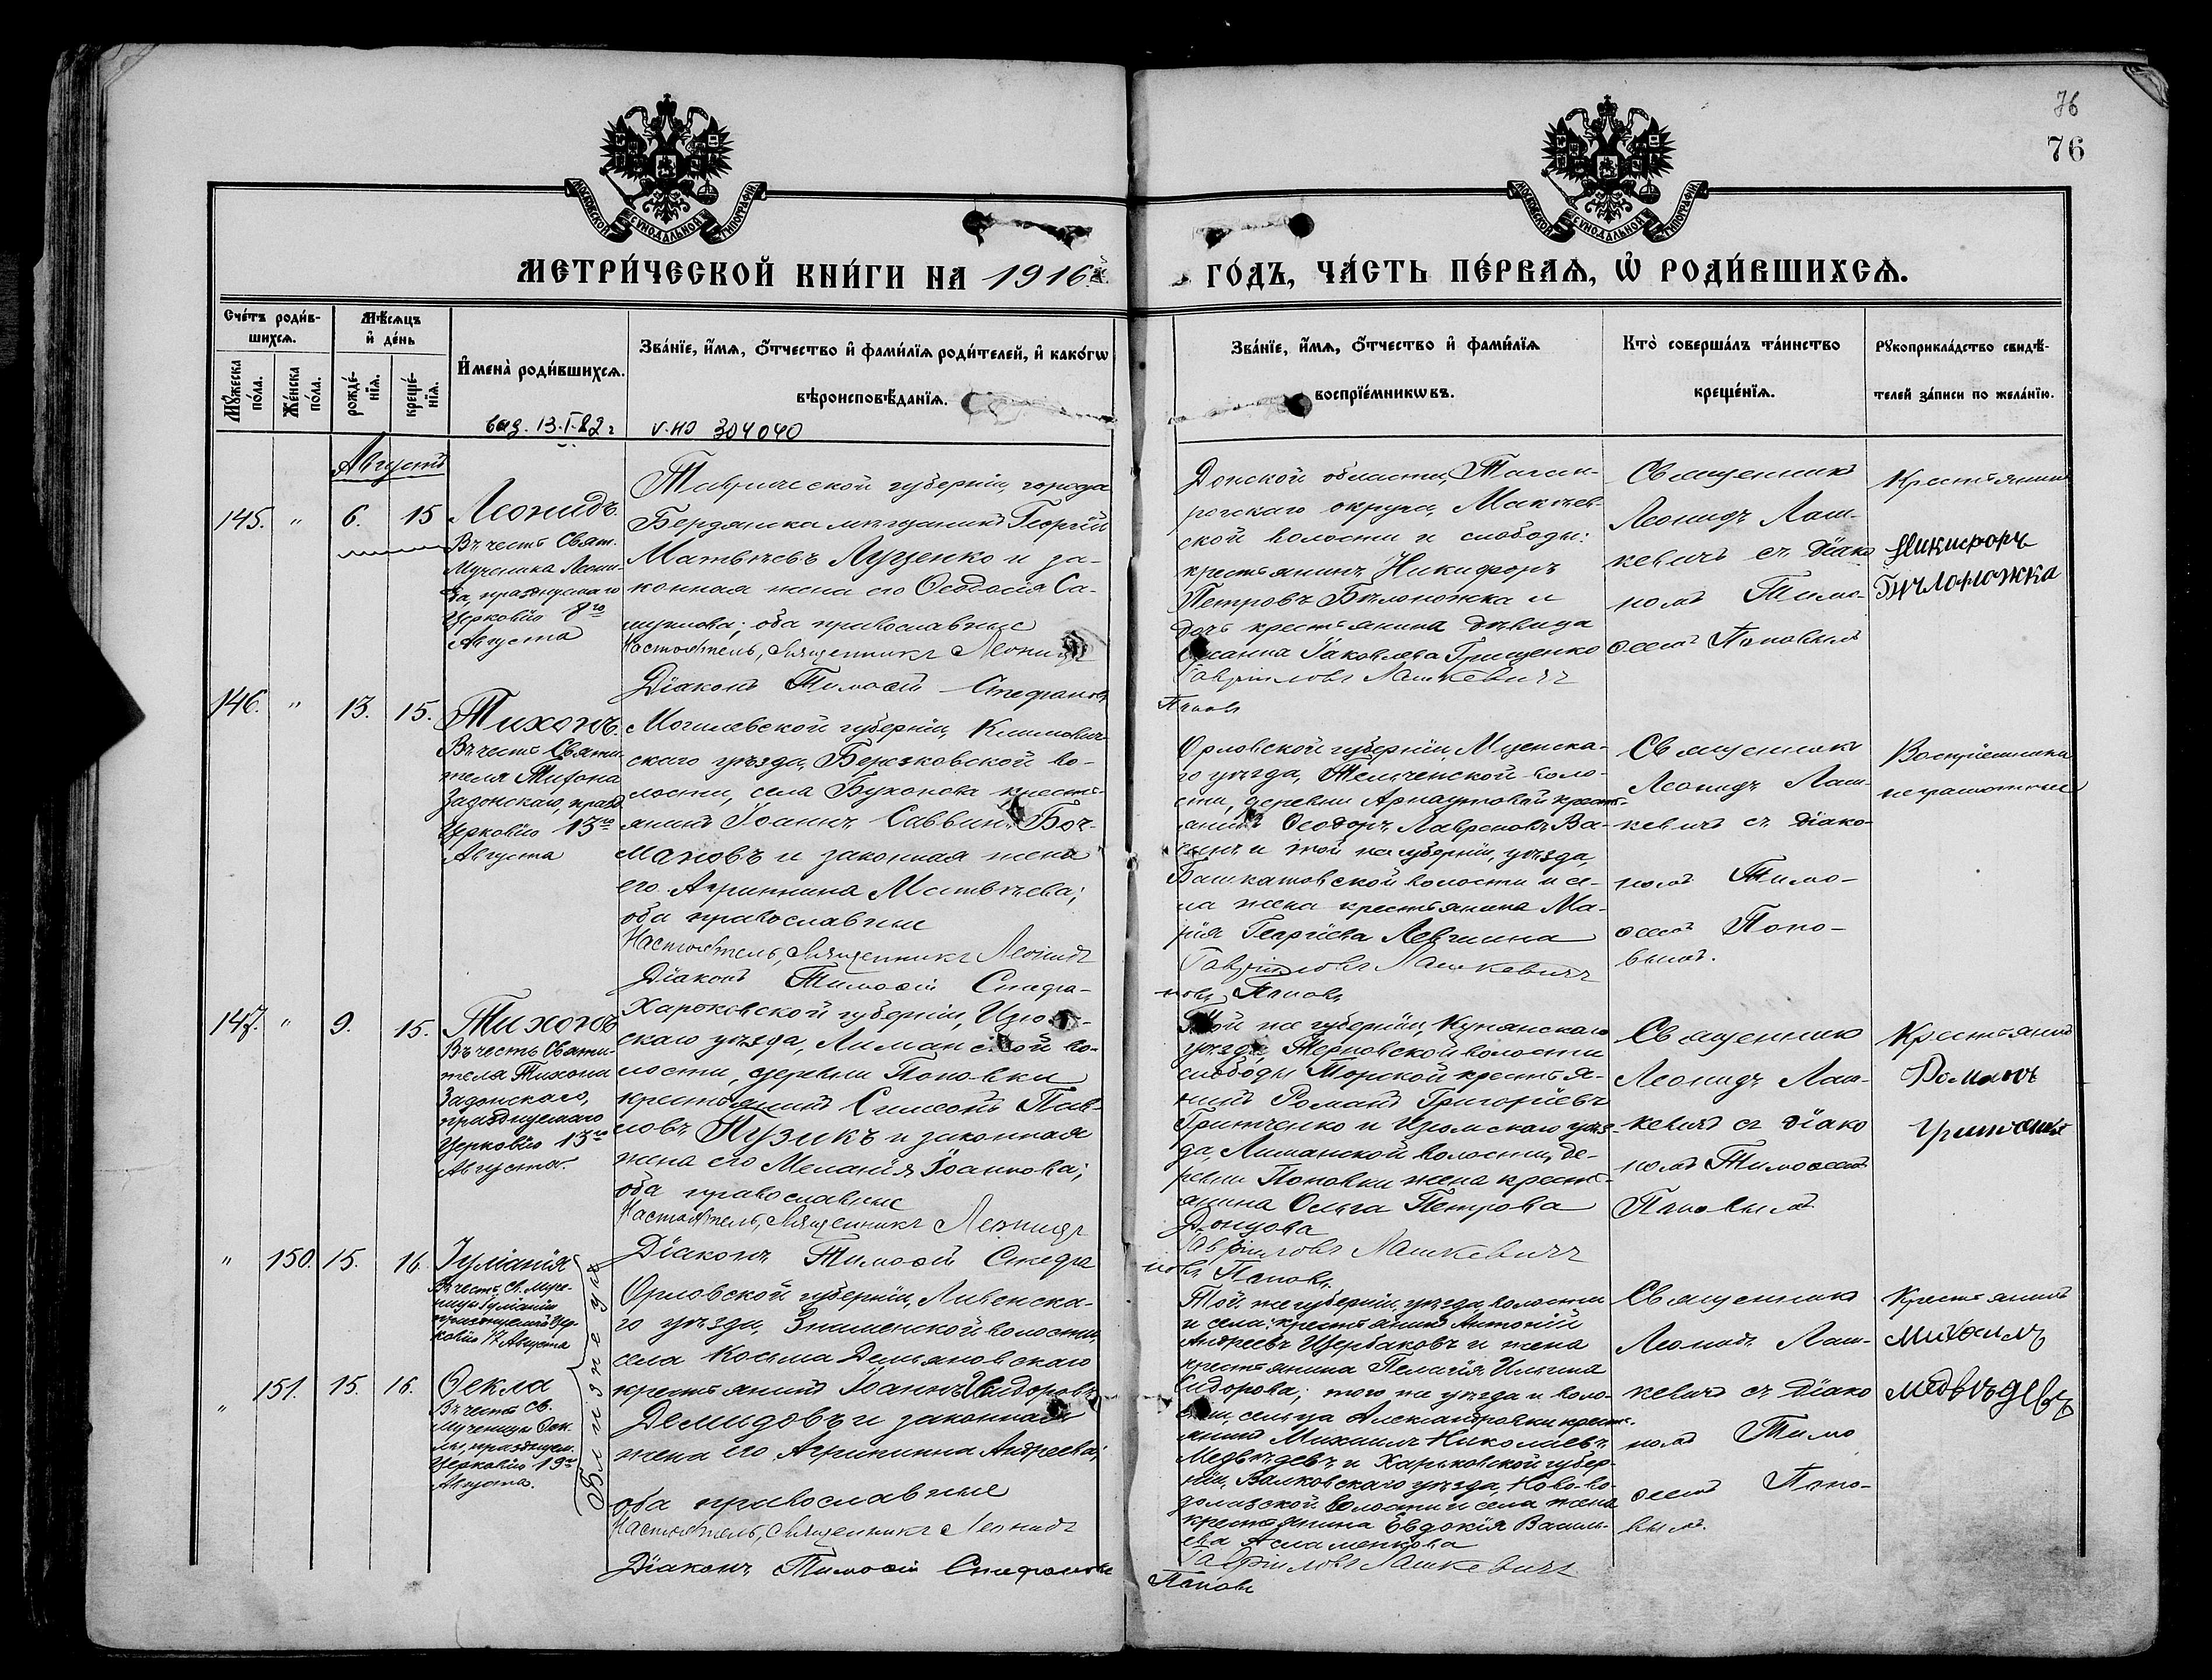 76
76
МОСКОВСКОЙ СѴНОДАЛЬНОЙ ТИПОГРАФІИ
МОСКОВСКОЙ СѴНОДАЛЬНОЙ ТИПОГРАФІИ
МЕТРИ́ЧЕСКОЙ КНИ́ГИ НА 1916й
ГО́ДЪ, ЧА́СТЬ ПЕ́РВАѦ, Ѡ҆ РОДИ́ВШИХСѦ.
Сче́тъ роди́в-
шихсѧ.
Мꙋ́жеска по́ла.
Же́нска по́ла.
Мѣ́сѧцъ
и҆ де́нь
рожде́-
нїѧ.
креще́-
нїѧ.
И҆мена̀ роди́вшихсѧ.
Зва́нїе, и҆́мѧ, ѻ҆́тчество и҆ фами́лїѧ роди́телей, и҆ како́гѡ
вѣроисповѣ́данїѧ.
Зва́нїе, и҆́мѧ, ѻ҆́тчество и҆ фами́лїѧ
воспрїе́мникѡвъ.
Кто̀ соверша́лъ та́инство
креще́нїѧ.
Рꙋкоприкла́дство свидѣ́-
телей за́писи по жела́нїю.
13.I.82 г
304040
Августъ
145.
"
6.
15
Леонидъ.
Въ честь Свят.
Мученика Леони-
да, празднуемаго
Церковію 8го
Августа
Таврической губерніи, города
Бердянска мѣщанинъ Георгій
Матвѣевъ Луценко и за-
конная жена его Ѳеодосія Са-
муилова; оба православные
Настоятель, Священникъ Леонидъ
Діаконъ Тимоѳей Стефановъ
Донской области, Таган-
рогскаго округа, Макѣев-
ской волости и слободы:
крестьянинъ Никифоръ
Петровъ Бѣлоножка и
дочь крестьянина дѣвица
Іаковлева Грищенко
Гавріиловъ Лашкевичъ
Поповъ
Священникъ
Леонидъ Лаш-
кевичъ съ діако
номъ Тимо-
ѳеемъ Поповымъ
Крестьянинъ
Никифоръ
Бѣлоножка
146.
"
13.
15.
Тихонъ.
Въ честь Святи-
теля Тихона
Задонскаго, празд.
Церковію 13го
Августа
Могилевской губерніи, Климович-
скаго уѣзда, Березковской во-
лости, села Буконова кресть-
янинъ Іоаннъ Саввинъ Боч-
мановъ и законная жена
его Агриппина Матвѣева;
оба православные
Настоятель, Священникъ Леонидъ
Діаконъ Тимоѳей Стефа-
Орловской губерніи, Мценска-
го уѣзда, Тельченской воло-
сти, деревни Арнаутовой крест-
янинъ Ѳеодоръ Лавреновъ Ва-
и той же губерніи, уѣзда,
Башкатовской волости и се-
ла жена крестьянина Ма-
рія Георгіева Левшина
Гавріиловъ Лашкевичъ
новъ Поповъ
Священникъ
Леонидъ Лаш-
кевичъ съ діако-
номъ Тимо-
ѳеемъ Попо-
вымъ.
Воспріемники
неграмотные
147.
"
9.
15.
Тихонъ
Въ честь Святи-
теля Тихона
Задонскаго,
празднуемаго
Церковію 13го
Августа.
Харьковской губерніи, Изюм-
скаго уѣзда, Лиманской во-
лости, деревни Поповки
крестьянинъ Симеонъ Пав-
ловъ Пузикъ и законная
жена его Меланія Іоаннова;
оба православные
Настоятель, Священникъ Леонидъ
Діаконъ Тимоѳей Стефа
Той же губерніи, Купянскаго
уѣзда, Терновской волости
слободы Торской крестья-
нинъ Романъ Григоріевъ
Гритченко и Изюмскаго уѣз-
да, Лиманской волости, де-
ревни Поповки жена кресть-
янина Ольга Петрова
Донцова
Гавріиловъ Лашкевичъ
новъ Поповъ.
Священникъ
Леонидъ Лаш-
кевичъ съ діако
номъ Тимоѳеемъ
Поповымъ
Крестьянинъ
Романъ
"
150.
15.
16.
Іуліанія
Въ честь Св. Муче-
ницы Іуліаніи
празднуемой Цер-
ковію 17 Августа
"
151.
15.
16.
Ѳекла
Въ честь Св.
Мученицы Ѳек-
лы, празднуем.
Церковію 19го
Августа.
Близнецы
Орловской губерніи, Ливенска-
го уѣзда, Знаменской волости,
села Косьма Демьяновскаго
крестьянинъ Іоаннъ Исидоровъ
Демидовъ и законная
жена его Агриппина Андреева;
оба православные
Настоятель, Священникъ Леонидъ
Діаконъ Тимоѳей Стефановъ
Той же губерніи, уѣзда, волости
и села: крестьянинъ Антоній
Андреевъ Щербаковъ и жена
крестьянина Пелагія Ильина
Сидорова; того же уѣзда и воло-
сти, сельца Александровки крест-
янинъ Михаилъ Николаевъ
Медвѣдевъ и Харьковской губер-
ніи, Валковскаго уѣзда, Ново-во-
долажской волости и села жена
крестьянина Евдокія Василь-
ева Асламенкова
Гавріиловъ Лашкевичъ
Поповъ
Священникъ
Леонидъ Лаш-
кевичъ съ діако
номъ Тимо
ѳеемъ Попо-
вымъ.
Крестьянинъ
Михаилъ
Медвѣдевъ